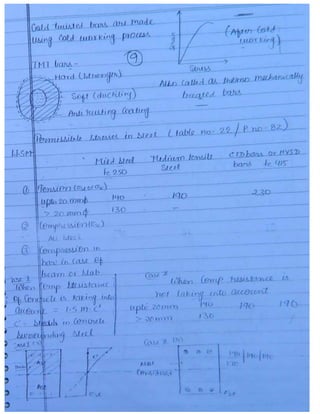 Cold twisted bars are made
using cold working process
(After Cold
working)
Stress
9
TMT bars -
Hard (Strength)
Soft (ductility)
Anti rusting coating
Also called as thermo mechanically
treated bars
Permissible stresses in steel (Table no: 22 / P. no - 82)
Mild steel Medium tensile CTD bars or HYSD
fe 250 steel bars fe 415
① Tension
upto 20 mm ϕ 140 190 230
> 20 mm ϕ 130 -
② Compression
③ Compression in
bar in case of
beam or slab
When Comp resistance
of Concrete is taking into
account = 1.5 m c'
c' = stress in concrete
surrounding steel
Case 2
When Comp resistance is
not taking into account
upto 20mm 140 190 190
> 20mm 130